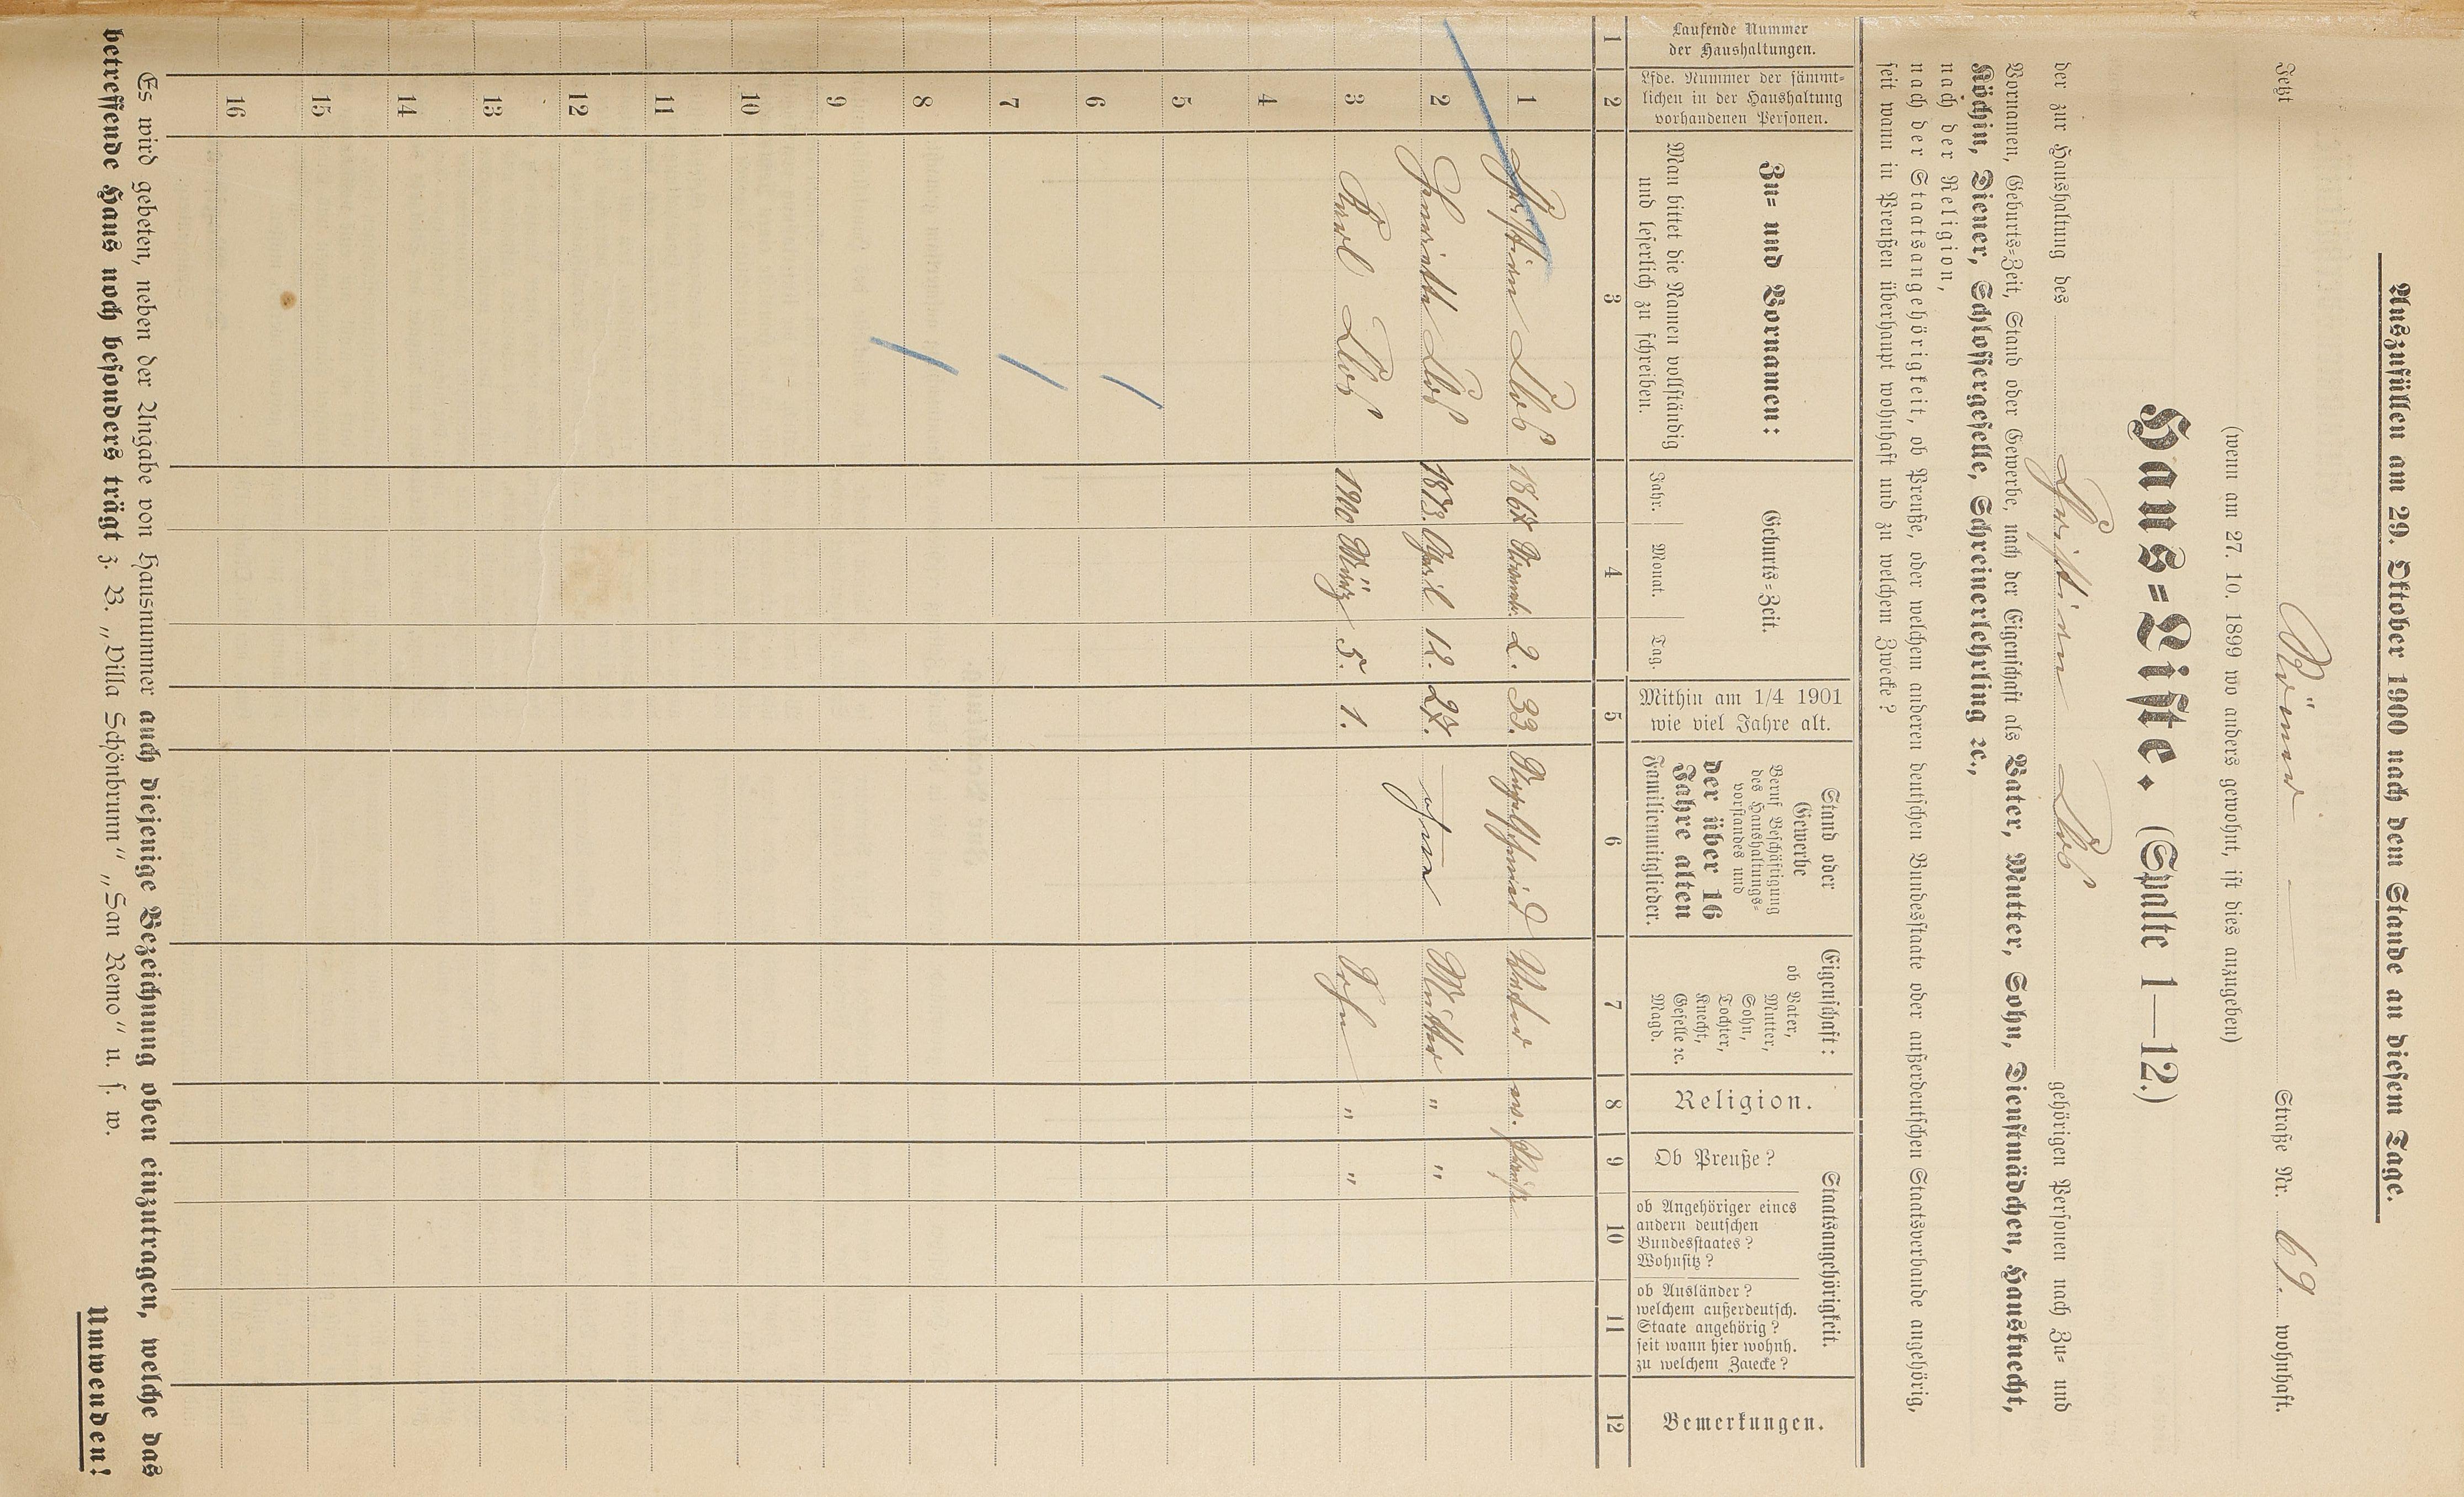 Auszufüllen am 29. Oktober 1900 nach dem Stande an diesem Tage.
Jetzt Römer Straße Nr. 69. wohnhaft.
(wenn am 27. 10. 1899 wo anders gewohnt, ist dies anzugeben)
Haus=Liste. (Spalte 1—12.)
der zur Haushaltung des Christian Lob gehörigen Personen nach Zu= und
Vornamen, Geburts=Zeit, Stand oder Gewerbe, nach der Eigenschaft als Vater, Mutter, Sohn, Dienstmädchen, Hausknecht,
Köchin, Diener, Schlossergeselle, Schreinerlehrling ꝛc.,
nach der Religion,
nach der Staatsangehörigkeit, ob Preuße, oder welchem anderen deutschen Bundesstaate oder außerdeutschen Staatsverbande angehörig,
seit wann in Preußen überhaupt wohnhaft und zu welchem Zwecke?
Laufende Nummer
der Haushaltungen.
Lfde. Nummer der sämmt=
lichen in der Haushaltung
vorhandenen Personen.
Zu= und Vornamen:
Man bittet die Namen vollständig
und leserlich zu schreiben.
Geburts=Zeit.
Jahr. Monat. Tag.
Mithin am 1/4 1901
wie viel Jahre alt.
Stand oder
Gewerbe
Beruf Beschäftigung
des Haushaltungs=
vorstandes und
der über 16
Jahre alten
Familienmitglieder.
Eigenschaft:
ob Vater,
Mutter,
Sohn,
Tochter,
Knecht,
Geselle ꝛc.
Magd.
Religion.
Staatsangehörigkeit.
Ob Preuße?
ob Angehöriger eines
andern deutschen
Bundesstaates?
Wohnsitz?
ob Ausländer?
welchem außerdeutsch.
Staate angehörig?
seit wann hier wohnh.
zu welchem Zwecke?
Bemerkungen.
1 2 3 4 5 6 7 8 9 10 11 12
1 Christian Lob 1867 Novemb. 2. 33. Vater ev. Preuße
2 Henriette Lob 1873. April 12. 27. ohne Mutter " "
3 Karl Lob 1900 März 5. 1. Sohn " "
4
5
6
7
8
9
10
11
12
13
14
15
16
Es wird gebeten, neben der Angabe von Hausnummer auch diejenige Bezeichnung oben einzutragen, welche das
betreffende Haus noch besonders trägt z. B. „Villa Schönbrunn" „San Remo" u. s. w.
Umwenden!